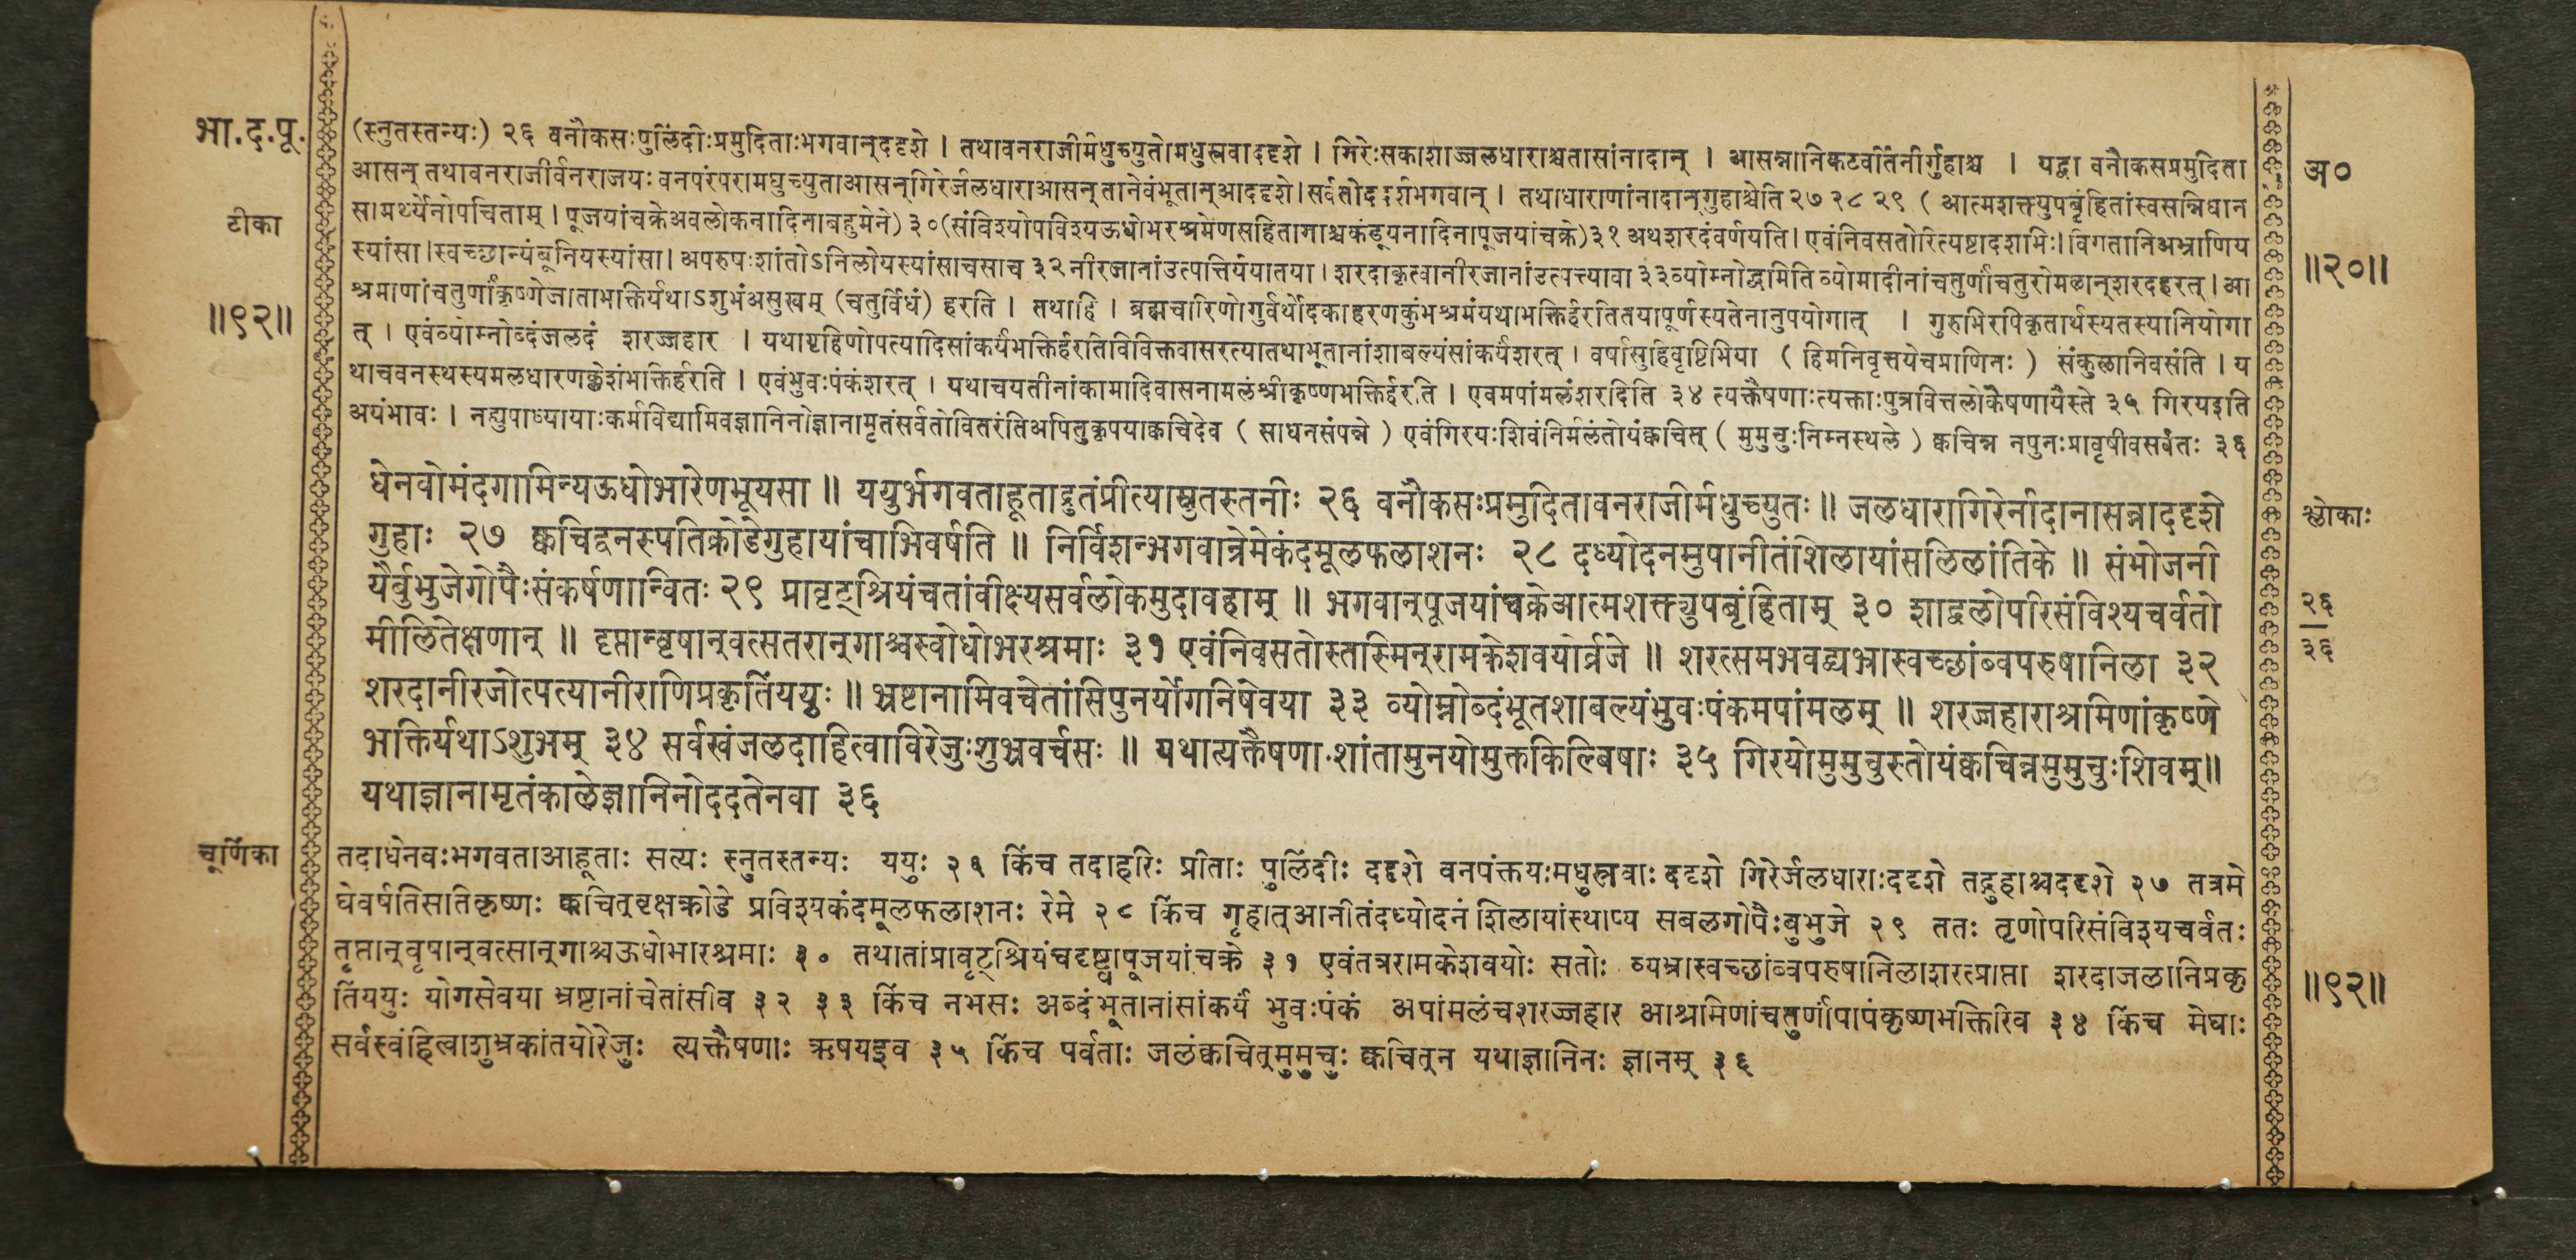 भा.द.पू.
(स्नुतस्तन्यः) २६ वनौकसःपुलिंदीःप्रमुदिताःभगवान्ददृशे । तथावनराजीर्मधुच्युतोमधुस्रवाददृशे । गिरेःसकाशाज्जलधाराश्चतासांनादान् । आसन्नानिकटवर्तिनीर्गुहाश्च । यद्वा वनौकसप्रमुदिता
अ०
आसन् तथावनराजीर्वनराजयः वनपरंपरामधुच्युताआसन्गिरेर्जलधाराआसन् तानेवंभूतान्आददृशे। सर्वतोददर्शभगवान् । तथाधाराणांनादान्गुहाश्चेति २७ २८ २९ ( आत्मशक्त्युपबृंहितांस्वसन्निधान
टीका
सामर्थ्येनोपचिताम् । पूजयांचक्रेअवलोकनादिनाबहुमेने) ३० (संविश्योपविश्यऊधोभरश्रमेणसहितागाश्चकंडूयनादिनापूजयांचक्रे) ३१ अथशरदंवर्णयति। एवंनिवसतोरित्यष्टादशभिः। विगतानिअभ्राणिय
॥२०॥
स्यांसा। स्वच्छान्यंबूनियस्यांसा। अपरुषःशांतोऽनिलोयस्यांसाचसाच ३२ नीरजानांउत्पत्तिर्ययातया । शरदाकृत्वानीरजानांउत्पत्त्यावा ३३ व्योम्नोद्धमिति व्योमादीनांचतुर्णांचतुरोमलान्शरदहरत् । आ
॥९२॥
श्रमाणांचतुर्णांकृष्णेजाताभक्तिर्यथाऽशुभंअसुखम् (चतुर्विधं) हरति । तथाहि । ब्रह्मचारिणोगुर्वर्थोदकाहरणकुंभश्रमंयथाभक्तिर्हरतितयापूर्णस्यतेनानुपयोगात् । गुरुभिरपिकृतार्थस्यतस्यानियोगा
त् । एवंव्योम्नोब्दंजलदं शरज्जहार । यथागृहिणोपत्यादिसांकर्यंभक्तिर्हरतिविविक्तवासरत्यातथाभूतानांशाबल्यंसांकर्यंशरत् । वर्षासुहिवृष्टिभिया ( हिमनिवृत्तयेचप्राणिनः ) संकुलानिवसंति । य
थाचवनस्थस्यमलधारणक्लेशंभक्तिर्हरति । एवंभुवःपंकंशरत् । यथाचयतीनांकामादिवासनामलंश्रीकृष्णभक्तिर्हरति । एवमपांमलंशरदिति ३४ त्यक्तैषणाःत्यक्ताःपुत्रवित्तलोकैषणायैस्ते ३५ गिरयइति
अयंभावः । नह्युपाध्यायाःकर्मविद्यामिवज्ञानिनोज्ञानामृतंसर्वतोवितरंतिअपितुकृपयाक्वचिदेव ( साधनसंपन्ने ) एवंगिरयःशिवंनिर्मलंतोयंक्वचित् ( मुमुचुःनिम्नस्थले ) क्वचिन्न नपुनःप्रावृषीवसर्वतः ३६
धेनवोमंदगामिन्यऊधोभारेणभूयसा ॥ ययुर्भगवताहूताद्रुतंप्रीत्यास्नुतस्तनीः २६ वनौकसःप्रमुदितावनराजीर्मधुच्युतः ॥ जलधारागिरेर्नादानासन्नाददृशे
श्लोकाः
गुहाः २७ क्वचिद्वनस्पतिक्रोडेगुहायांचाभिवर्षति ॥ निर्विशन्भगवान्रेमेकंदमूलफलाशनः २८ दध्योदनमुपानीतंशिलायांसलिलांतिके ॥ संभोजनी
यैर्बुभुजेगोपैःसंकर्षणान्वितः २९ प्रावृट्श्रियंचतांवीक्ष्यसर्वलोकमुदावहाम् ॥ भगवान्पूजयांचक्रेआत्मशक्त्युपबृंहिताम् ३० शाद्वलोपरिसंविश्यचर्वतो
२६
३६
मीलितेक्षणान् ॥ तृप्तान्वृषान्वत्सतरान्गाश्चस्वोधोभरश्रमाः ३१ एवंनिवसतोस्तस्मिन्रामकेशवयोर्व्रजे ॥ शरत्समभवद्व्यभ्रास्वच्छांब्वपरुषानिला ३२
शरदानीरजोत्पत्यानीराणिप्रकृतिंययुः ॥ भ्रष्टानामिवचेतांसिपुनर्योगनिषेवया ३३ व्योम्नोब्दंभूतशाबल्यंभुवःपंकमपांमलम् ॥ शरज्जहाराश्रमिणांकृष्णे
भक्तिर्यथाऽशुभम् ३४ सर्वस्वंजलदाहित्वाविरेजुःशुभ्रवर्चसः ॥ यथात्यक्तैषणाःशांतामुनयोमुक्तकिल्बिषाः ३५ गिरयोमुमुचुस्तोयंक्वचिन्नमुमुचुःशिवम्॥
यथाज्ञानामृतंकालेज्ञानिनोददतेनवा ३६
चूर्णिका
तदाधेनवःभगवताआहूताः सत्यः स्नुतस्तन्यः ययुः २६ किंच तदाहरिः प्रीताः पुलिंदीः ददृशे वनपंक्तयःमधुस्रवाः ददृशे गिरेर्जलधाराःददृशे तद्गुहाश्चददृशे २७ तत्रमे
घेवर्षतिसतिकृष्णः क्वचित्वृक्षक्रोडे प्रविश्यकंदमूलफलाशनः रेमे २८ किंच गृहात्आनीतंदध्योदनं शिलायांस्थाप्य सबलगोपैःबुभुजे २९ ततः तृणोपरिसंविश्यचर्वतः
तृप्तान्वृषान्वत्सान्गाश्चऊधोभारश्रमाः ३० तथातांप्रावृट्श्रियंचदृष्ट्वापूजयांचक्रे ३१ एवंतत्ररामकेशवयोः सतोः व्यभ्रास्वच्छांब्वपरुषानिलाशरत्प्राप्ता शरदाजलानिप्रकृ
॥९२॥
तिंययुः योगसेवया भ्रष्टानांचेतांसीव ३२ ३३ किंच नभसः अब्दंभूतानांसांकर्यं भुवःपंकं अपांमलंचशरज्जहार आश्रमिणांचतुर्णांपापंकृष्णभक्तिरिव ३४ किंच मेघाः
सर्वस्वंहित्वाशुभ्रकांतयोरेजुः त्यक्तैषणाः ऋषयइव ३५ किंच पर्वताः जलंक्वचित्मुमुचुः क्वचित्न यथाज्ञानिनः ज्ञानम् ३६